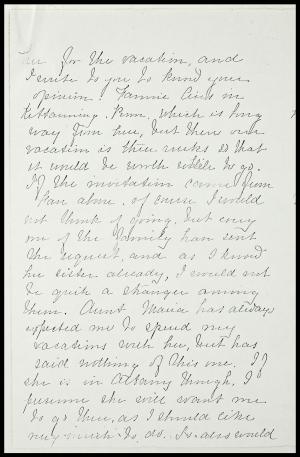 for the vacation, and
I write to you to know your
opinion. Fannie lives in
Kittanning, Penn. which is long
way from here, but then our
vacation is three weeks so that
it would be worth while to go.
If the invitation came from
Fan alone, of course I would
not think of going, but every
one of the family has sent
the request, and as I know
her sister already, I would not
be quite a stranger among
them. Aunt Maria has always
expected me to spend my
vacations with her, but has
said nothing of this one. If
she is in Albany though, I
presume she will want me
to go there, as I should like
very much to do. Is also would